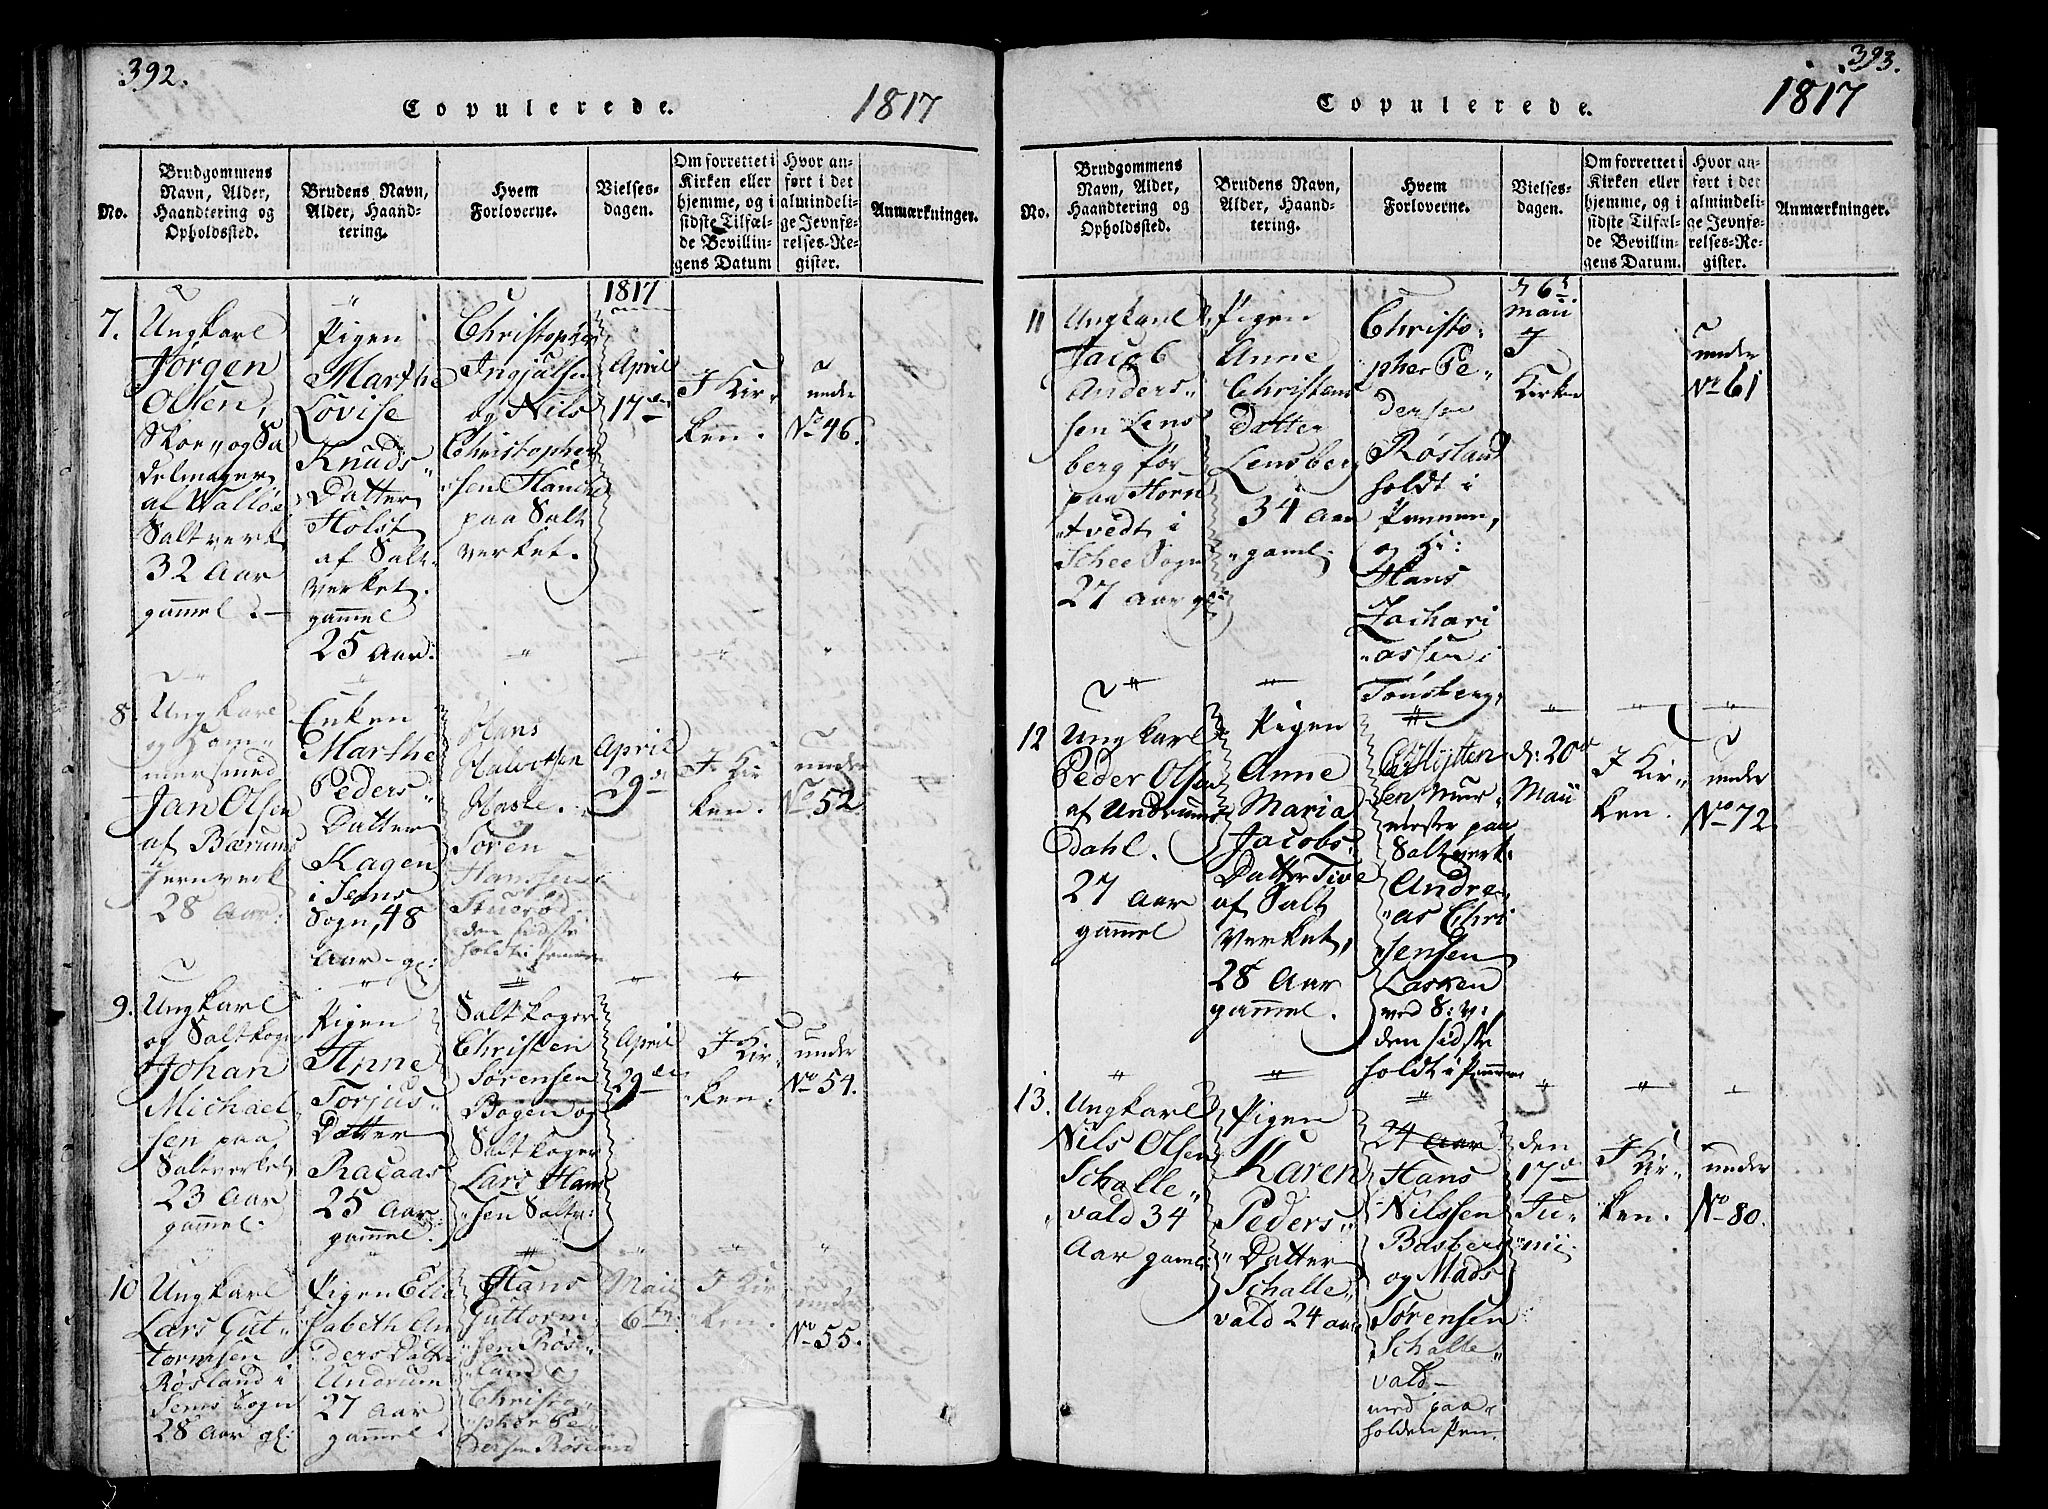 392.
Copulerede.
1817
No.
Brudgommens
Navn, Alder,
Haandtering og
Opholdssted.
Brudens Navn,
Alder, Haand-
tering.
Hvem
Forloverne.
Vielses-
dagen.
Om forrettet i
Kirken eller
hjemme, og i
sidste Tilfæl-
de Bevillin-
gens Datum
Hvor an-
ført i det
almindeli-
ge Jevnfø-
relses-Re-
gister.
Anmærkninger.
7.
Ungkarl
Jørgen
Olsen,
Skoe,, og Sa
delmager
af Walløe
Saltverk
32 Aar
gammel.
Pigen
Marthe
Lovise
Knuds"
Datter
Holst
af Salt-
verket.
gammel
25 Aar.
Christopher
Ingjulsen
og Nils
Christopher
sen
paa Salt
verket.
1817
April
17de
I Kir-
ken.
under
No 46.
8.
Ungkarl
og Ham-
mersmed
Jan Olsen
af Bærums
Jernverk
28 Aar.
Enken
Marthe
Peders"
Datter
Hagen
i Sems
Sogn, 48
Aar gl:
Hans
Halvorsen
Hasle.
Søren
Hanssen
den sidste
holdt i
April
29de
I Kir
ken.
under
No 52.
9.
Ungkarl
af Saltkoger
Johan
Michael
sen paa
Saltverket
23 Aar
gammel.
Pigen
Anne
Torjus"
Datter
Racaas
25 Aar
gammel.
Saltkoger
Christen
Sørensen
Bogen og
Saltkoger
Lars Hans
sen Saltv:
April
29de
I Kir
ken.
under
No 54.
10
Ungkarl
Lars Gut"
tormsen
Røsland i
Sems Sogn
28 Aar gl:
Pigen Elli
sabeth An
ders Datter
Undrum
27 Aar
gammel.
Hans
Guttorm
sen Røs"
land og
Christo"
pher Pe"
dersen Røsland
Maii
6te
I Kir
ken.
under
No 55.
393.
Copulerede.
1817
No.
Brudgommens
Navn, Alder,
Haandtering og
Opholdssted.
Brudens Navn,
Alder, Haand-
tering.
Hvem
Forloverne.
Vielses-
dagen.
Om forrettet i
Kirken eller
hjemme, og i
sidste Tilfæl-
de Bevillin-
gens Datum.
Hvor an-
ført i det
almindeli-
ge Jevnfø-
relses-Re-
gister.
Anmærkninger.
11
Ungkarl
Jacob
Anders"
sen Lens
berg før
paa Horn
tvedt i
Schee Sogn
27 Aar gl:
Pigen
Anne
Christens
Datter
Lensberg
34 Aar
gaml.
Christo"
pher Pe"
dersen
Røsland
holdt i
Pennen,
og Hr:
Hans
Zachari
assen i
Tønsberg.
Maii
I
Kirken
under
No 61
12
Ungkarl
Peder Olsen
af Undrums
Dahl.
27 Aar
gammel
Pigen
Anne
Maria
Jacobs"
Datter Tive
af Salt
verket,
28 Aar
gammel.
sen, Muur"
mester paa
Saltverk:
Andre"
as Chri
stensen
Lasken
ved S: v:
den sidste
holdt i Pennen
d: 20de
Maii
I Kir"
ken.
under
No 72
13.
Ungkarl
Nils Olsen
Schalle"
vald 34
Aar gaml.
Pigen
Karen
Peders"
Datter
Schalle"
vald 24 aar
24 Aar
Hans
Nilssen
Basberg
og Mads
Sørensen
Schalle"
vald
med paa"
holden Pen.
den
17de
Ju"
nii.
I Kir"
ken.
under
No 80.